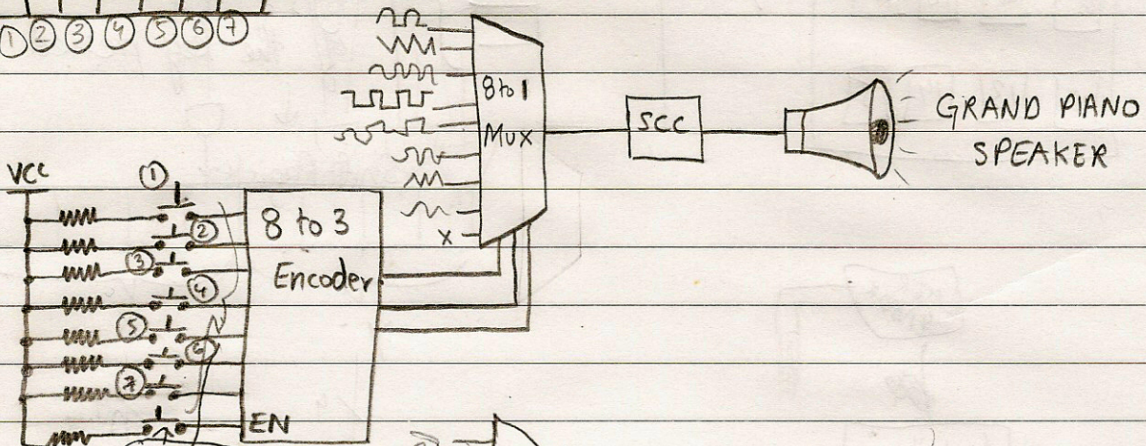 ① ② ③ ④ ⑤ ⑥ ⑦
8 to 1
Mux
SCC
GRAND PIANO
SPEAKER
VCC
①
②
③
④
⑤
⑥
⑦
8 to 3
Encoder
EN
X